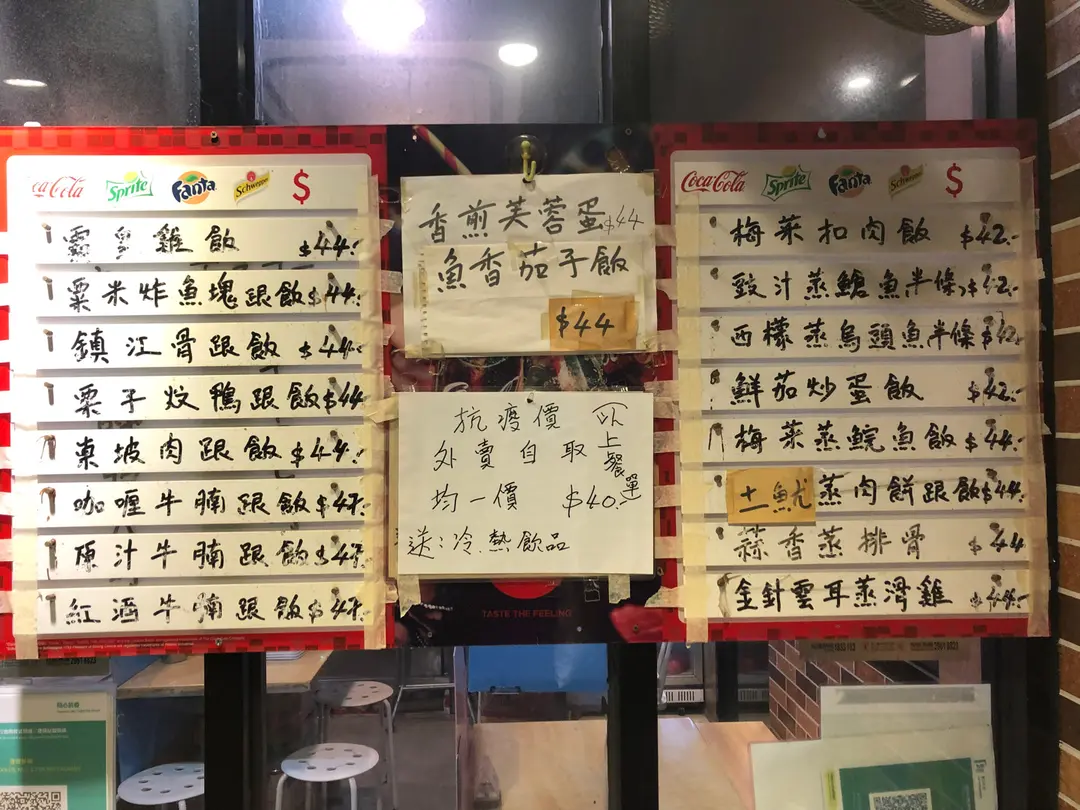 Coca-Cola Sprite Fanta Schweppes $
霸皇雞飯 $44.-
粟米炸魚塊跟飯 $44.-
鎮江骨跟飯 $44.-
栗子炆鴨跟飯 $44
東坡肉跟飯 $44.-
咖喱牛腩跟飯 $47.-
原汁牛腩跟飯 $47.-
紅酒牛腩跟飯 $47.-
香煎芙蓉蛋 $44
魚香茄子飯
$44
抗疫價
外賣自取
均一價 $40.-
送:冷.熱飲品
以上餐單
TASTE THE FEELING
Coca-Cola Sprite Fanta Schweppes $
梅菜扣肉飯 $42.-
豉汁蒸鯧魚半條 $42.-
西檬蒸烏頭魚半條
鮮茄炒蛋飯 $42.-
梅菜蒸鯇魚飯 $44.-
土魷蒸肉餅跟飯 $44.-
蒜香蒸排骨 $44
金針雲耳蒸滑雞 $44.-